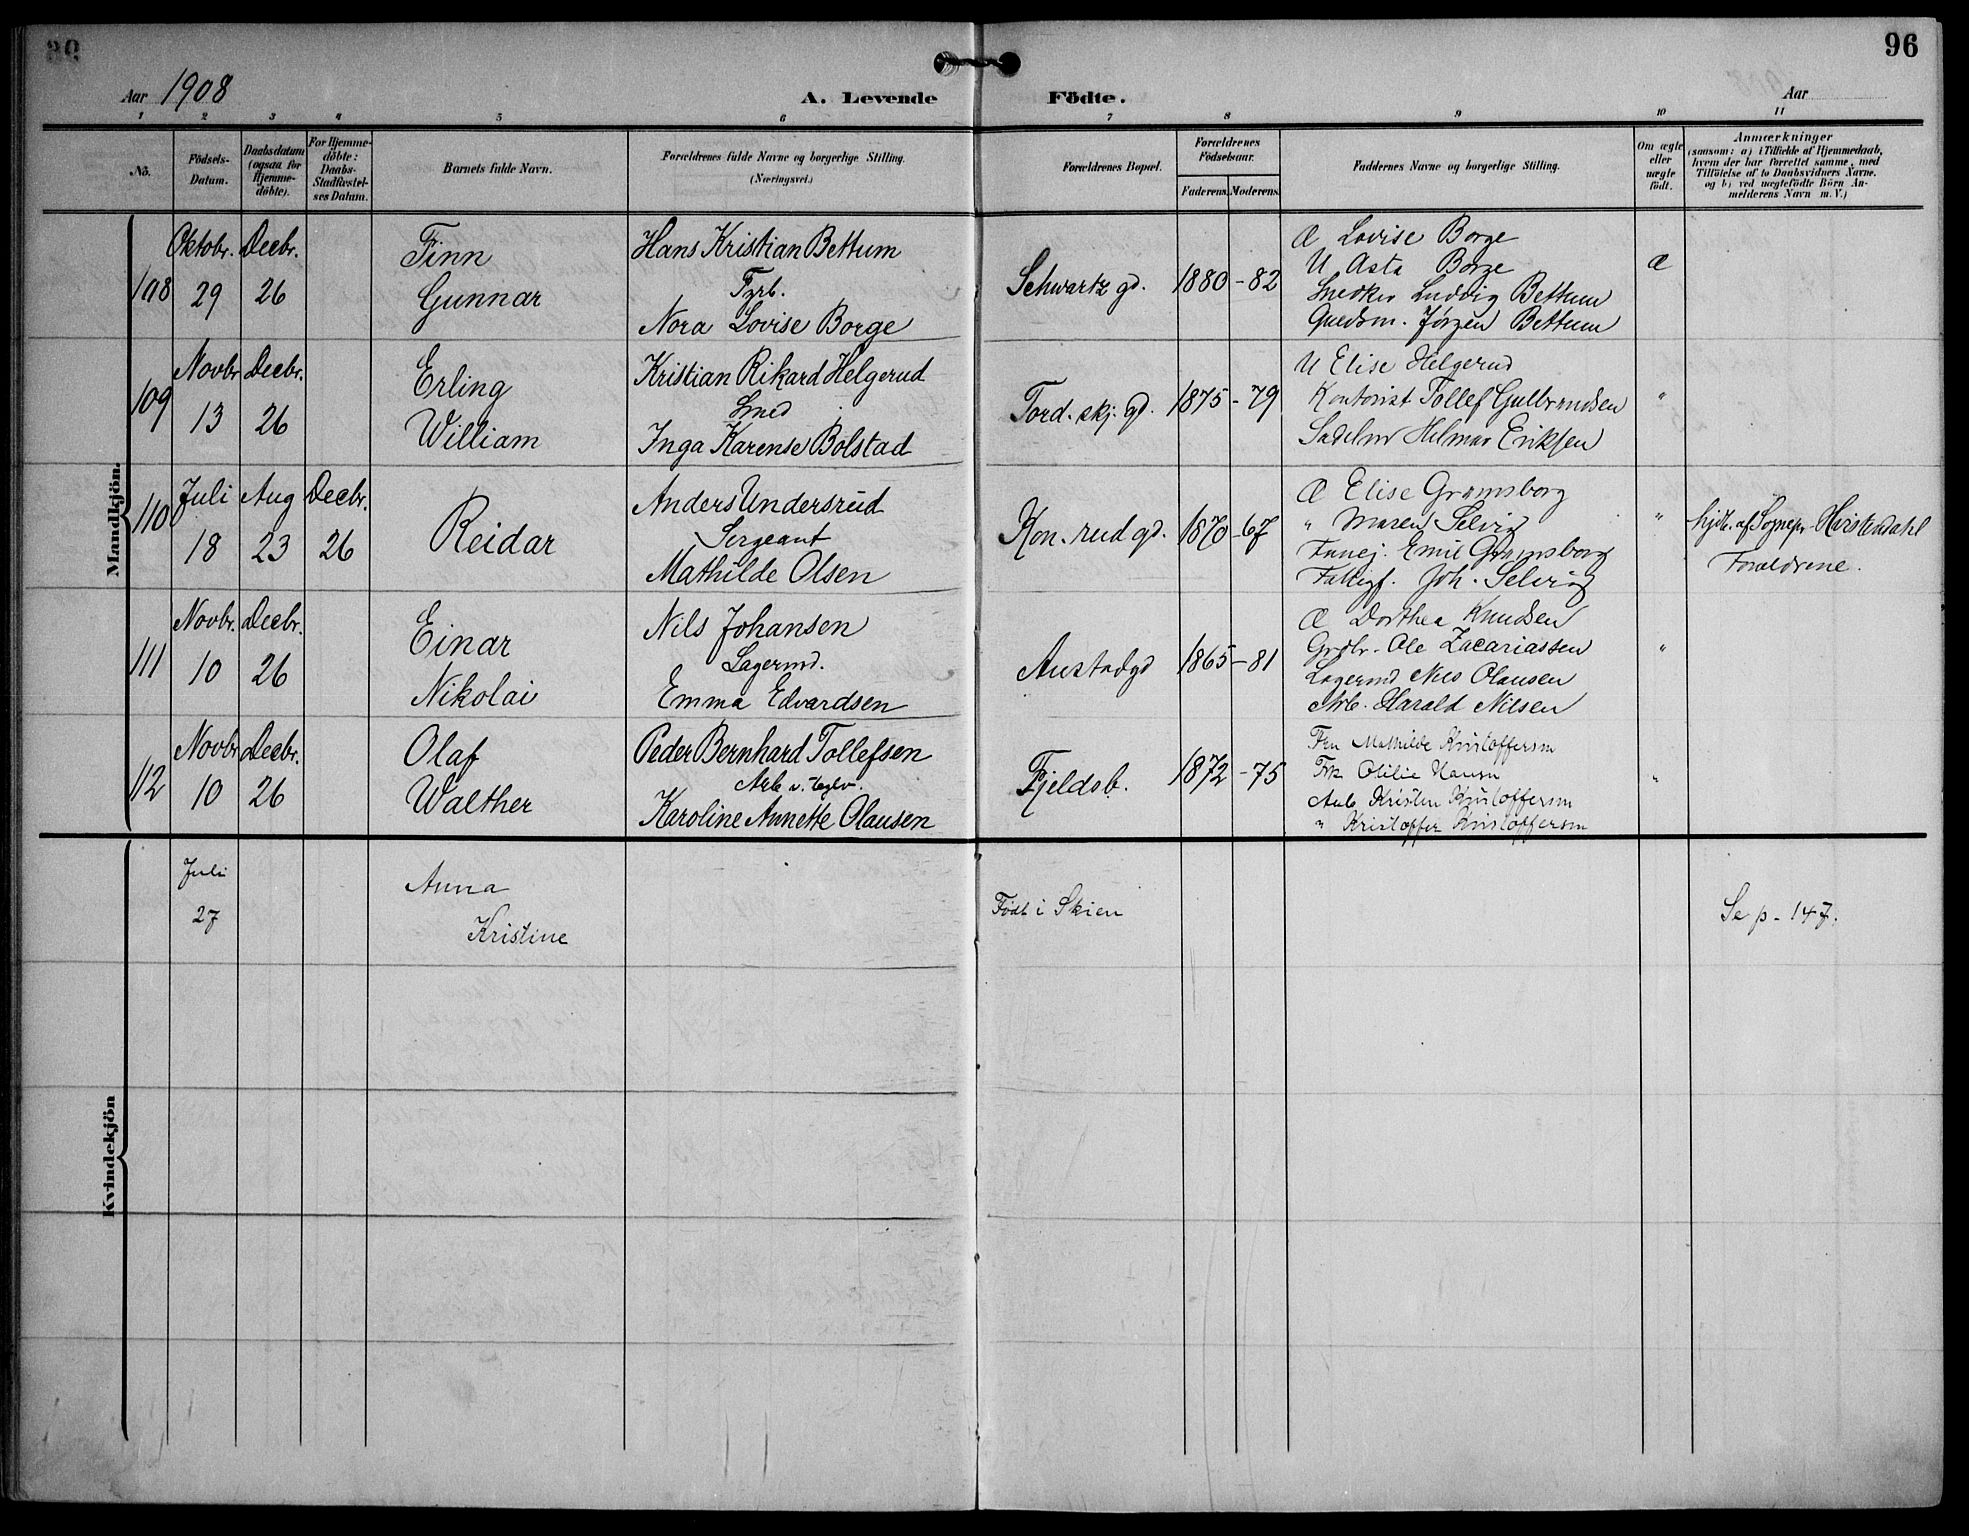 96
Aar 1908
A. Levende Födte.
Aar
1 2 3 4 5 6 7 8 9 10 11
No.
Födsels-Datum.
Daabsdatum (ogsaa for Hjemme-döbte).
For Hjemme-döbte: Daabs-Stadfæstel-ses Datum.
Barnets fulde Navn.
Forældrenes fulde Navne og borgerlige Stilling.
(Næringsvei.)
Forældrenes Bopæl.
Forældrenes Födselsaar.
Faderens. Moderens.
Faddernes Navne og borgerlige Stilling.
Om ægte eller uægte födt.
Anmærkninger
(saasom: a) i Tilfælde af Hjemmedaab,
hvem der har forrettet samme, med
Tilföielse af to Daabsvidners Navne.
og b) ved uægtefödte Börn An-
melderens Navn m. V.)
Mandkjön.
108
Oktobr. 29
Decbr. 26
Finn
Gunnar
Hans Kristian Bettum
Fyrb.
Nora Lovise Borge
Schwartz gd.
1880 - 82
Æ Lovise Borge
U Asta Borge
Snedker Ludvig Bettum
Jørgen Bettum
Æ
109
Novbr 13
Decbr. 26
Erling
William
Kristian Rikard Helgerud
Smed
Inga Karense Bolstad
Tord. skj. gd.
1875 - 79
U Elise Helgerud
Kontorist Tollef Gulbrandsen
Helmar Eriksen
"
110
Juli 18
Aug 23
Decbr. 26
Reidar
Anders Undersrud
Sergeant
Mathilde Olsen
Kon. rud gd.
1870 - 67
Æ Elise Gramsborg
" Maren Selvig
Emil Gramsborg
Joh. Selvig
"
hjdb. af Sognepr Hvistendahl
Forældrene.
111
Novbr. 10
Decbr. 26
Einar
Nikolai
Nils Johansen
Lagermd.
Emma Edvardsen
Austadgd
1865 - 81
Æ Dorthea Knudsen
Grdbr. Ole Zacariassen
Lagermd Nils Olausen
Arb. Harald Nilsen
"
112
Novbr 10
Decbr. 26
Olaf
Walther
Peder Bernhard Tollefsen
Arb v. teglv.
Karoline Annette Olausen
Fjeldsb.
1872 - 75
Fru Mathilde Kristoffersen
Frk Otilie Hansen
Arb Kristen Kristoffersen
" Kristoffer Kristoffersen
"
Kvindekjön
Juli
27
Anna
Kristine
Födt i Skien
Se p. 147.